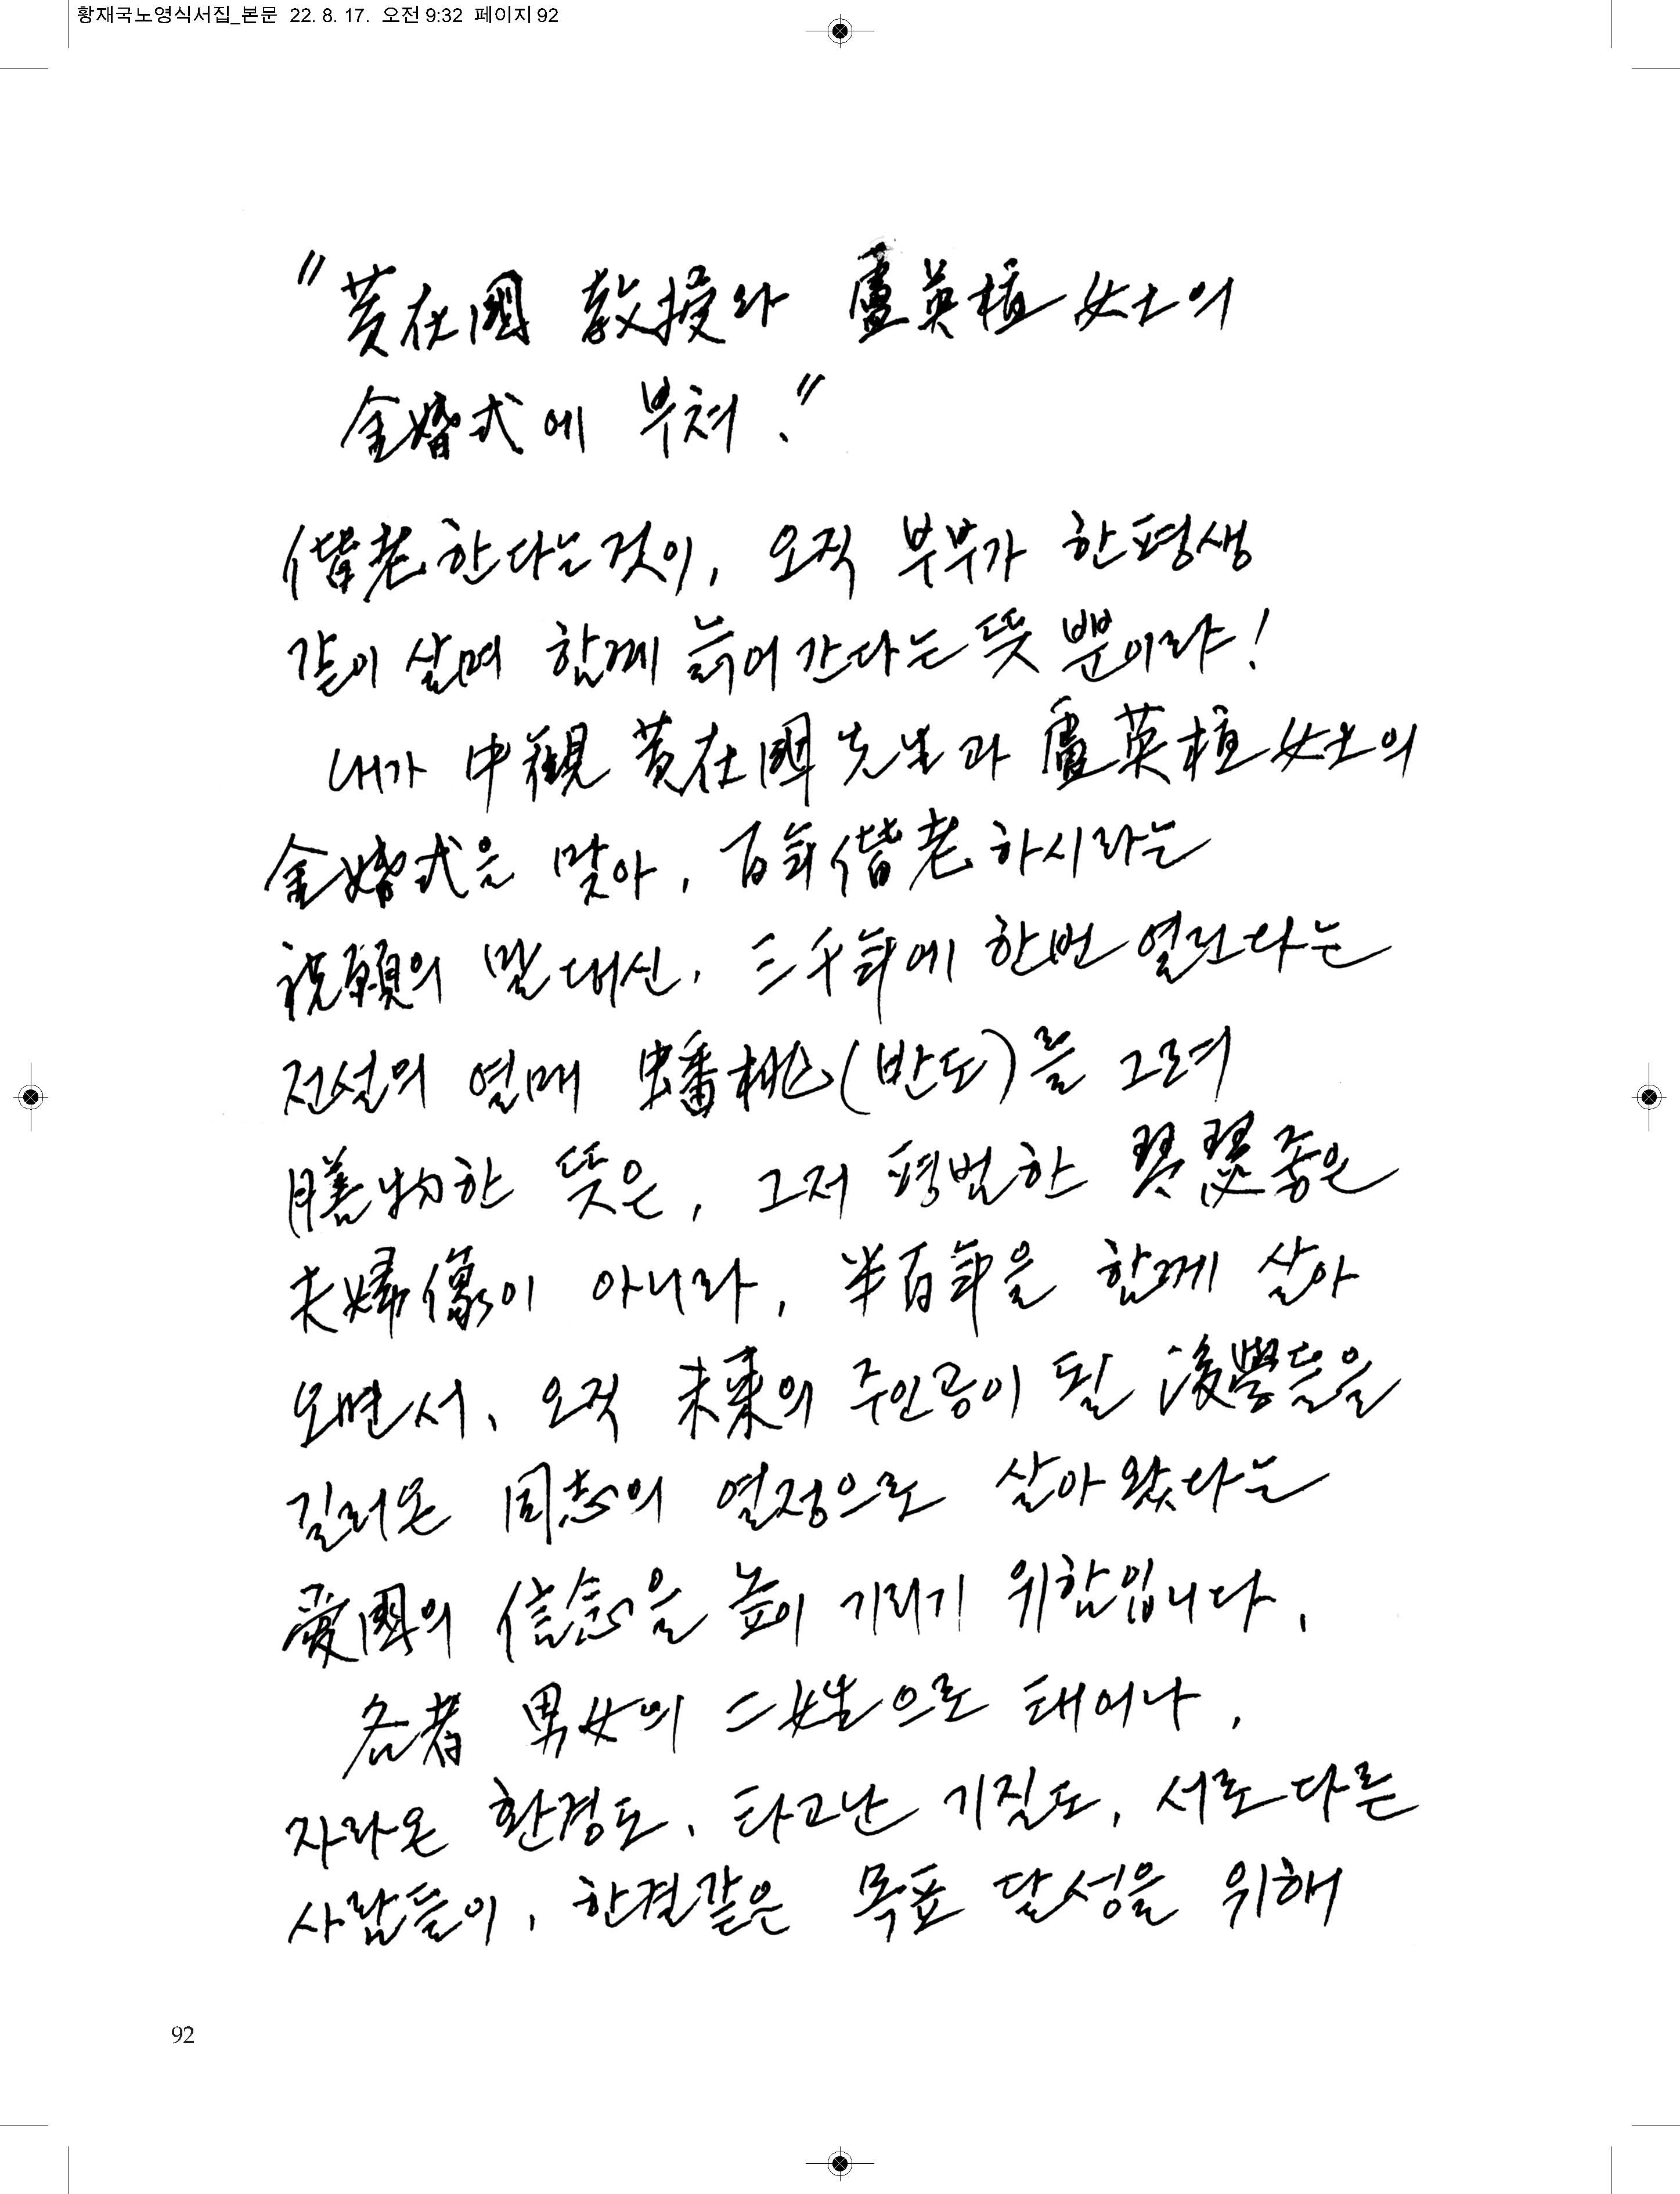 황재국노영식서집_본문 22. 8. 17. 오전 9:32 페이지 92
"黃在國 敎授와 盧英植 女士의
金婚式에 부쳐."
偕老한다는것이, 오직 부부가 한평생
같이 살며 함께 늙어간다는 뜻 뿐이랴!
내가 中觀 黃在國 先生과 盧英植 女士의
金婚式을 맞아, 百年偕老하시라는
祝願의 말 대신, 三千年에 한번 열린다는
전설의 열매 蟠桃(반도)를 그려
膳物한 뜻은, 그저 평범한 琴瑟좋은
夫婦像이 아니라, 半百年을 함께 살아
오면서, 오직 未來의 주인공이 될 後學들을
길러온 同志의 열정으로 살아왔다는
愛國의 信念을 높이 기리기 위함입니다.
各者 男女의 二姓으로 태어나,
자라온 환경도, 타고난 기질도, 서로 다른
사람들이, 한결같은 목표 달성을 위해
92